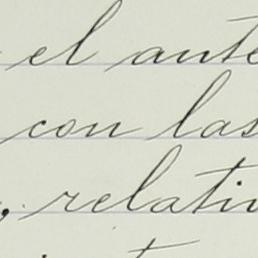 el ante
con las
, relativ